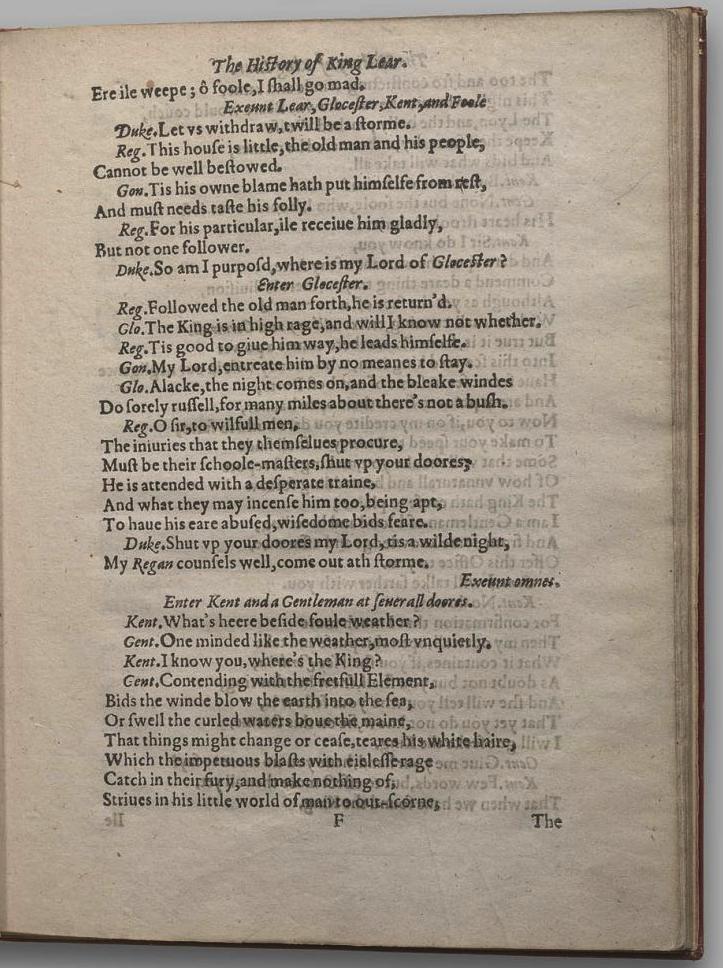 The History of King Lear.
Ere ile weepe; ô foole, I shall go mad.
Exeunt Lear, Glocester, Kent, and Foole
Duke. Let vs withdraw, twill be a storme.
Reg. This house is little, the old man and his people,
Cannot be well bestowed.
Gon. Tis his owne blame hath put himselfe from rest,
And must needs taste his folly.
Reg. For his particular, ile receiue him gladly,
But not one follower.
Duke. So am I purposd, where is my Lord of Glocester?
Enter Glocester.
Reg. Followed the old man forth, he is return'd.
Glo. The King is in high rage, and will I know not whether.
Reg. Tis good to giue him way, he leads himselfe.
Gon. My Lord, entreate him by no meanes to stay.
Glo. Alacke, the night comes on, and the bleake windes
Do sorely russell, for many miles about there's not a bush.
Reg. O sir, to wilfull men,
The iniuries that they themselues procure,
Must be their schoole-masters, shut vp your doores,
He is attended with a desperate traine,
And what they may incense him too, being apt,
To haue his eare abused, wisedome bids feare.
Duke. Shut vp your doores my Lord, tis a wilde night,
My Regan counsels well, come out ath storme.
Exeunt omnes.
Enter Kent and a Gentleman at seuerall doores.
Kent. What's heere beside foule weather?
Gent. One minded like the weather, most vnquietly.
Kent. I know you, where's the King?
Gent. Contending with the fretfull Element,
Bids the winde blow the earth into the sea,
Or swell the curled waters boue the maine,
That things might change or cease, teares his white haire,
Which the impetuous blasts with eielesse rage
Catch in their fury, and make nothing of,
Striues in his little world of man to out-scorne,
F The